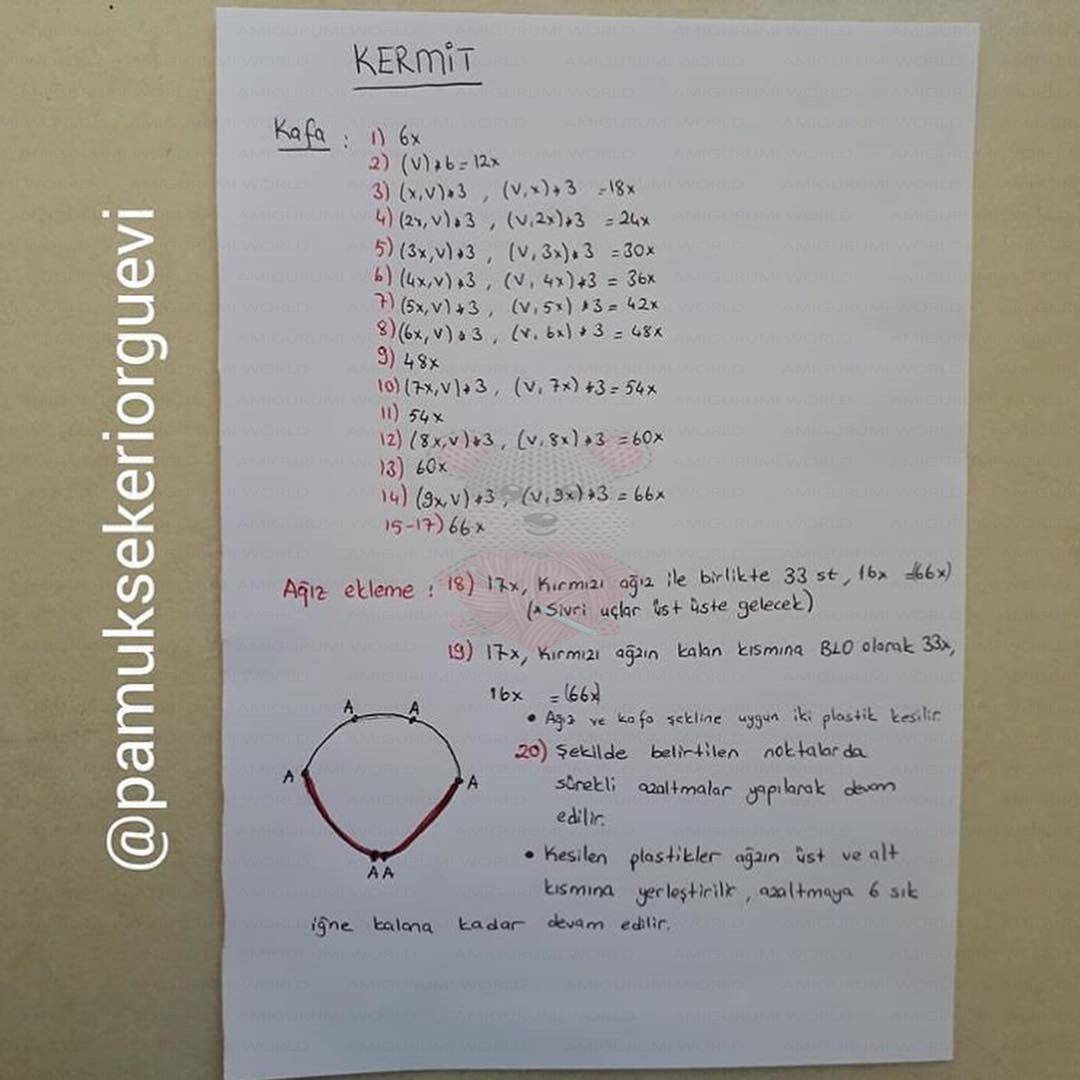 KERMİT
Kafa : 1) 6x
2) (V)*6=12x
3) (x,V)*3 , (V,x)*3 =18x
4) (2x,V)*3 , (V,2x)*3 =24x
5) (3x,V)*3 , (V,3x)*3 =30x
6) (4x,V)*3 , (V,4x)*3 = 36x
7) (5x,V)*3 , (V,5x)*3= 42x
8) (6x,V)*3 , (V,6x)*3 = 48x
9) 48x
10) (7x,V)*3 , (V,7x)*3= 54x
11) 54x
12) (8x,V)*3 , (V,8x)*3 =60x
13) 60x
14) (9x,V)*3 , (V,9x)*3 = 66x
15-17) 66x
Ağız ekleme : 18) 17x, Kırmızı ağız ile birlikte 33 st, 16x =(66x)
(* Sivri uçlar üst üste gelecek)
19) 17x, Kırmızı ağzın kalan kısmına BLO olarak 33x,
16x =(66x)
• Ağız ve kafa şekline uygun iki plastik kesilir
20) Şekilde belirtilen noktalarda
sürekli azaltmalar yapılarak devam
edilir.
• Kesilen plastikler ağzın üst ve alt
kısmına yerleştirilir, azaltmaya 6 sık
iğne kalana kadar devam edilir.
A A
A A
A A
@pamuksekeriorguevi
AMIGURUMI WORLD